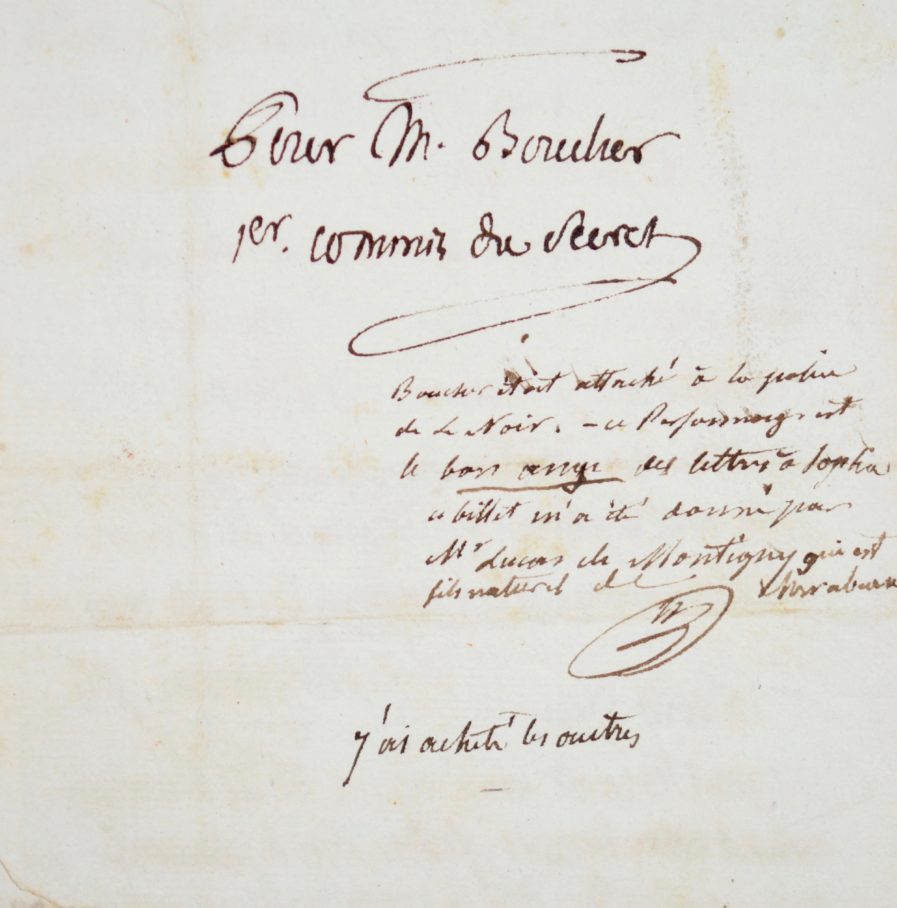 Pour M. Boucher
1er. commis du Secret
Boucher était attaché à la police
de Le Noir. – ce Personnage est
le bon ange des lettres à Sophie
ce billet m'a été donné par
Mr Lucas de Montigny qui est
fils naturel de Mirabeau
j'ai acheté les autres